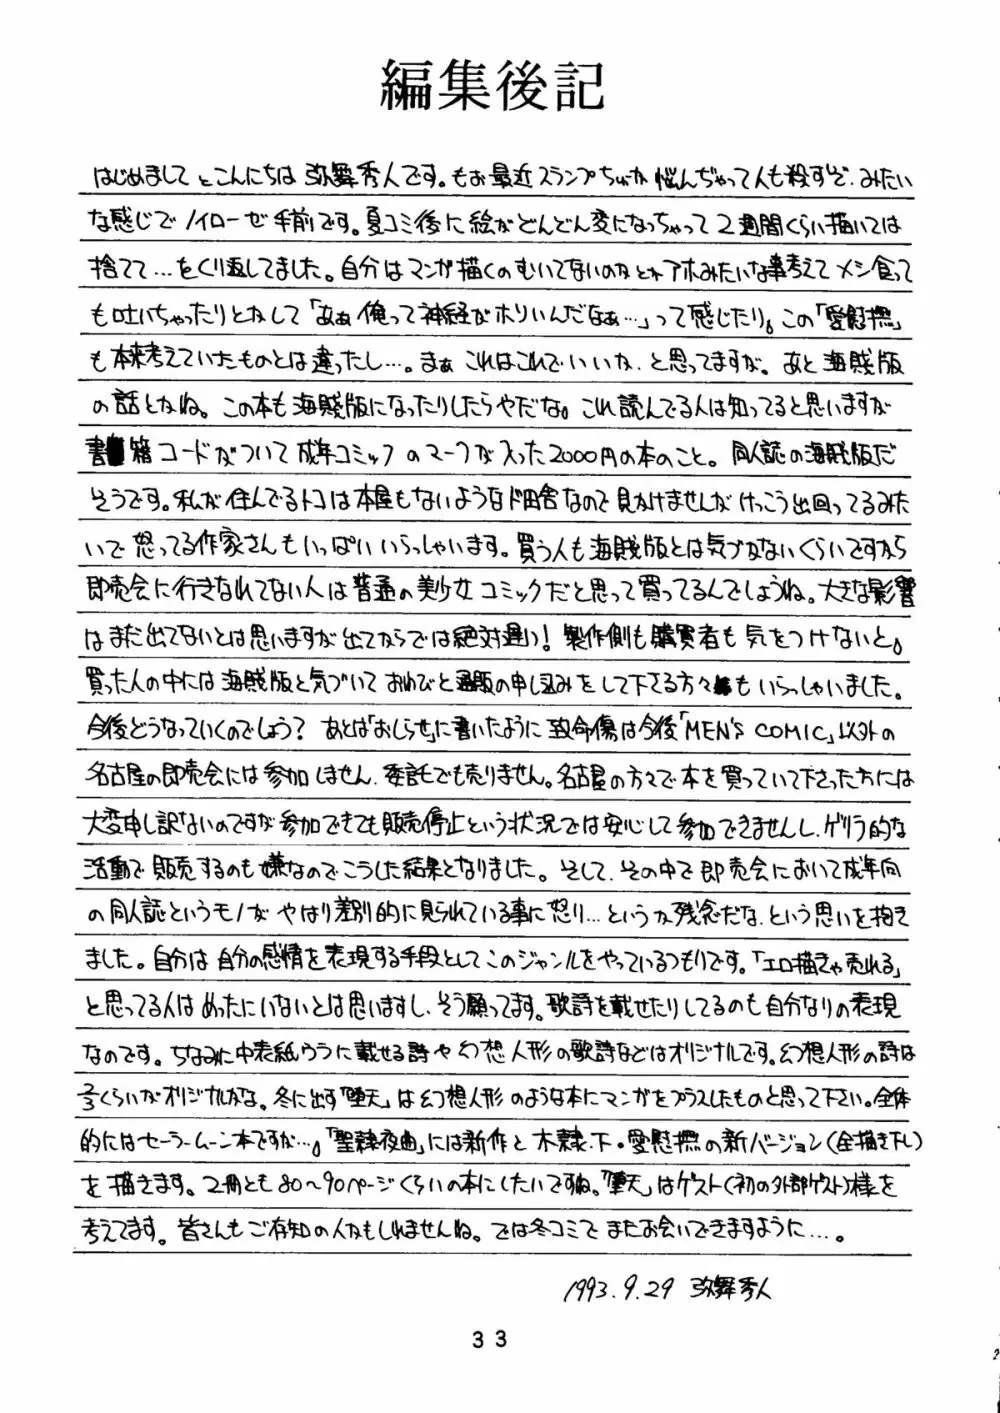 編集後記
はじめましてとこんにちは 弥舞秀人です。もお最近スランプちゅーか 悩んぢゃって人も殺すぞ、みたい
な感じでノイローゼ手前です。夏コミ後に絵がどんどん変になっちゃって2週間くらい描いては
捨てて…をくり返してました。自分はマンガ描くのむいてないのかとかアホみたいな事考えてメシ食って
も吐いちゃったりとかして「あぁ俺って神経がホソいんだなぁ…」って感じたり。この「愛慰撫」
も本来考えていたものとは違ったし…。まぁ これはこれでいいか、と思ってますが。あと海賊版
の話とかね。この本も海賊版になったりしたらやだな。これ読んでる人は知ってると思いますが
書籍コードがついて成年コミックのマークが入った2000円の本のこと。同人誌の海賊版だ
そうです。私が住んでるトコは本屋もないようなド田舎なので見かけませんがけっこう出回ってるみた
いで怒ってる作家さんもいっぱいいらっしゃいます。買う人も海賊版とは気づかないくらいですから
即売会に行きなれてない人は普通の美少女コミックだと思って買ってるんでしょうね。大きな影響
はまだ出てないとは思いますが出てからでは絶対遅い!製作側も購買者も気をつけないと。
買った人の中には海賊版と気づいておわびと通販の申し込みをして下さる方々もいらっしゃいました。
今後どうなっていくのでしょう? あとは「おしらせ」に書いたように致命傷は今後「MEN'S COMIC」以外の
名古屋の即売会には参加しません、委託でも売りません。名古屋の方々で本を買っていて下さった方には
大変申し訳ないのですが参加できても販売停止という状況では安心して参加できませんし、ゲリラ的な
活動で販売するのも嫌なのでこうした結果となりました。そして、その中で即売会において成年向
の同人誌というモノがやはり差別的に見られている事に怒り…というか残念だな、という思いを抱き
ました。自分は自分の感情を表現する手段としてこのジャンルをやっているつもりです。「エロ描きゃ売れる」
と思ってる人はめったにいないとは思いますし、そう願ってます。歌詩を載せたりしてるのも自分なりの表現
なのです。ちなみに中表紙ウラに載せる詩や幻想人形の歌詩などはオリジナルです。幻想人形の詩は
2/3くらいがオリジナルかな。冬に出す「堕天」は幻想人形のような本にマンガをプラスしたものと思って下さい。全体
的にはセーラームーン本ですが…。「聖隷夜曲」には新作と 木隷.下・愛慰撫の新バージョン(全描き下し)
を描きます。2冊とも80〜90ページくらいの本にしたいですね。「堕天」はゲスト(初の外部ゲスト)様を
考えてます。皆さんもご存知の人かもしれませんね。では冬コミでまたお会いできますように…。
1993.9.29 弥舞秀人
33